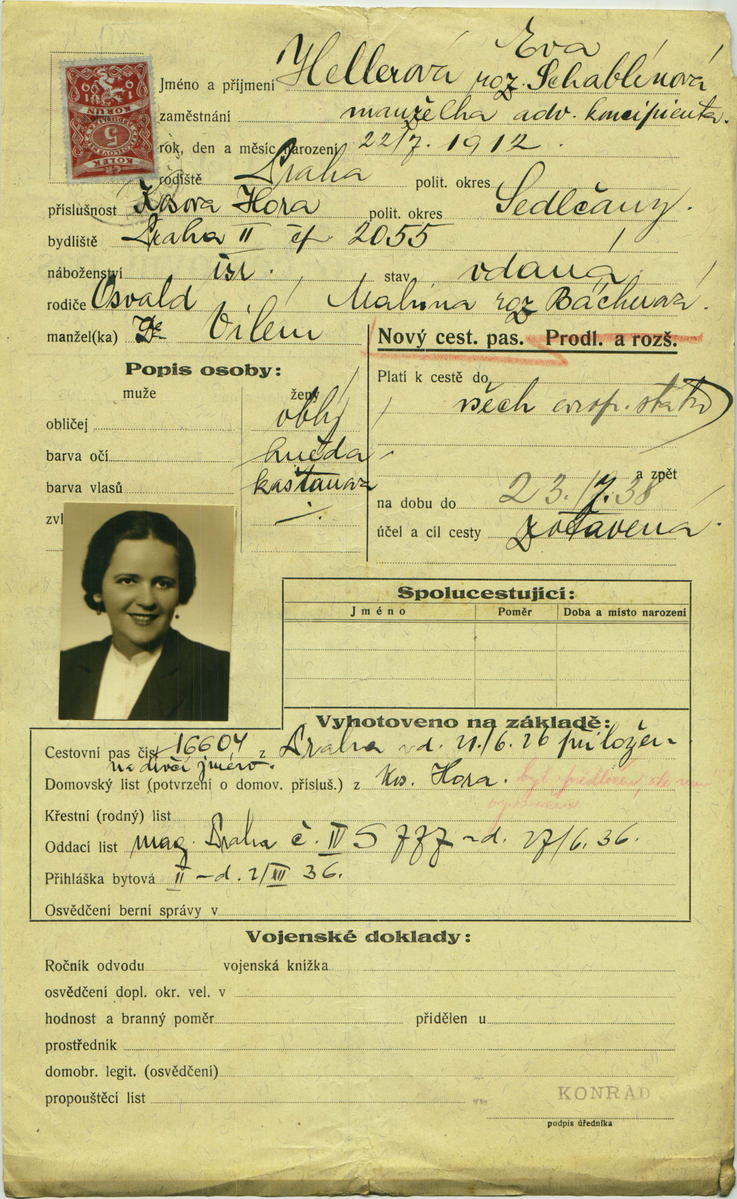 Eva
Jméno a příjmení Hellerová roz. Schablinová
zaměstnání manželka adv. koncipienta.
rok, den a měsíc narození 22/7. 1912.
rodiště Praha polit. okres
příslušnost Kosova Hora polit. okres Sedlčany.
bydliště Praha II čp. 2055
náboženství isr. stav vdaná
rodiče Osvald Malvina roz
manžel(ka) Dr Vilém
KORUN
5
KOLEK
Nový cest. pas. Prodl. a rozš.
Popis osoby:
muže ženy
obličej oblý
barva očí hnědá
barva vlasů kaštanová
zvl
Platí k cestě do
všech evrop. států
a zpět
na dobu do 23./7.38
účel a cíl cesty zotavená
Spolucestující:
Jméno Poměr Doba a místo narození
Vyhotoveno na základě:
Cestovní pas čís. 16604 z Praha d. 21./6.26 přiložen
na dívčí jméno.
Domovský list (potvrzení o domov. přísluš.) z Kos. Hora. byl předložen,
Křestní (rodný) list
Oddací list mag. Praha č. IV S 777 d. 27/6. 36.
Přihláška bytová II d. 2/XII 36.
Osvědčení berní správy v
Vojenské doklady:
Ročník odvodu vojenská knížka
osvědčení dopl. okr. vel. v
hodnost a branný poměr přidělen u
prostředník
domobr. legit. (osvědčení)
propouštěcí list
KONRÁD
podpis úředníka